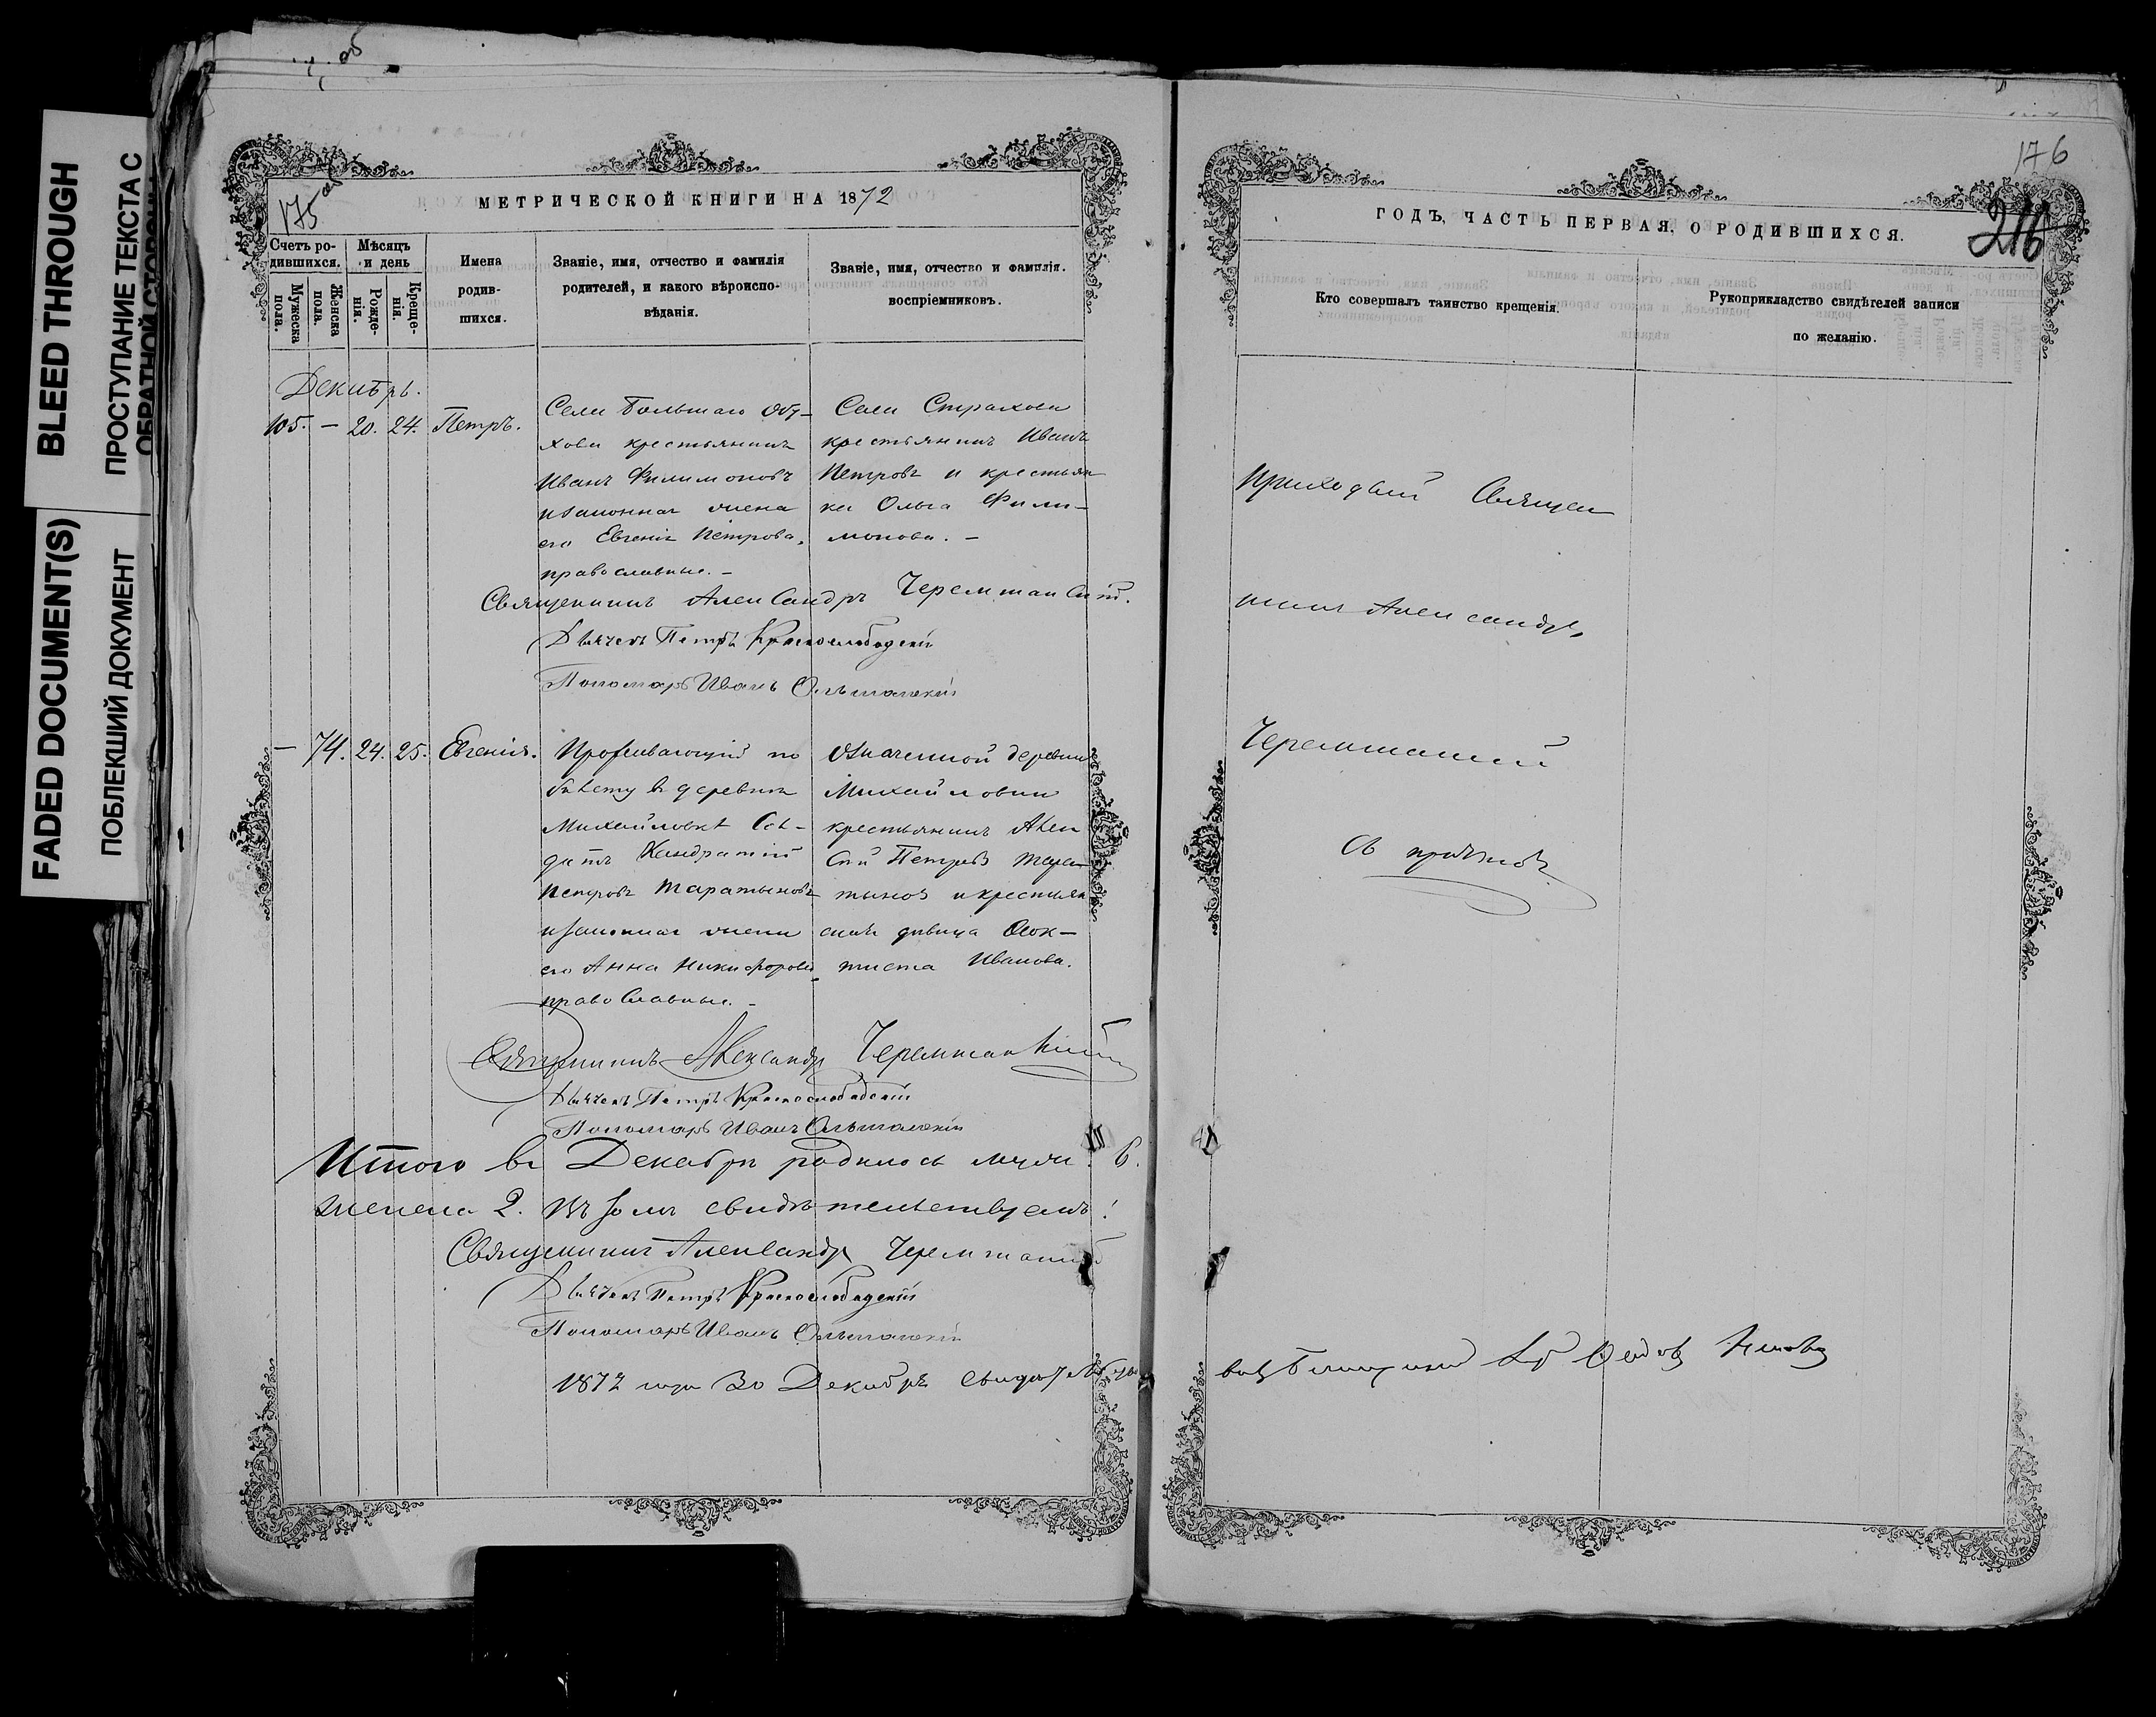 BLEED THROUGH
ПРОСТУПАНИЕ ТЕКСТА С
ОБРАТНОЙ СТОРОНЫ
FADED DOCUMENT(S)
ПОБЛЕКШИЙ ДОКУМЕНТ
175 об
МЕТРИЧЕСКОЙ КНИГИ НА 1872
Счетъ ро-
дившихся.
Мужеска
пола.
Женска
пола.
Мѣсяцъ
и день
Рожде-
нія.
Креще-
нія.
Имена
родив-
шихся.
Званіе, имя, отчество и фамилія
родителей, и какого вѣроиспо-
вѣданія.
Званіе, имя, отчество и фамилія.
воспріемниковъ.
Декабрь.
105. — 20. 24. Петръ.
Села Большаго Обу-
хова крестьянинъ
Иванъ Филимоновъ
и законная жена
его Евгенія Петрова,
православные. —
Села Страхова
крестьянинъ Иванъ
Петровъ и крестьян
ка Ольга Фили-
монова. —
Священникъ Александръ Черемшанскій.
Дьячекъ Петръ Краснослободскій
Пономарь Иванъ Ольшанскій
— 74. 24. 25. Евгенія.
Проживающій по
билету въ деревнѣ
Михайловкѣ Сол-
датъ Кандратій
Петровъ Таратыновъ
и законная жена
его Анна Никифорова
православные. —
Означенной деревни
Михайловки
крестьянинъ Алек
сѣй Петровъ Тара
тыновъ и крестьян
ская дѣвица Ѳеок-
тиста Иванова.
Священникъ Александръ Черемшанскій
Дьячекъ Петръ Краснослободскій
Пономарь Иванъ Ольшанскій
Итого въ Декабрѣ родилось муж. 6.
женска 2. Въ томъ свидѣтельствуемъ:
Священникъ Александръ Черемшанскій
Дьячекъ Петръ Краснослободскій
Пономарь Иванъ Ольшанскій
1872 года 30 Декабря
176
216
ГОДЪ, ЧАСТЬ ПЕРВАЯ, О РОДИВШИХСЯ.
Кто совершалъ таинство крещенія.
Рукоприкладство свидѣтелей записи
по желанію.
Приходскій Священ
никъ Александръ
Черемшанскій
съ причтомъ.